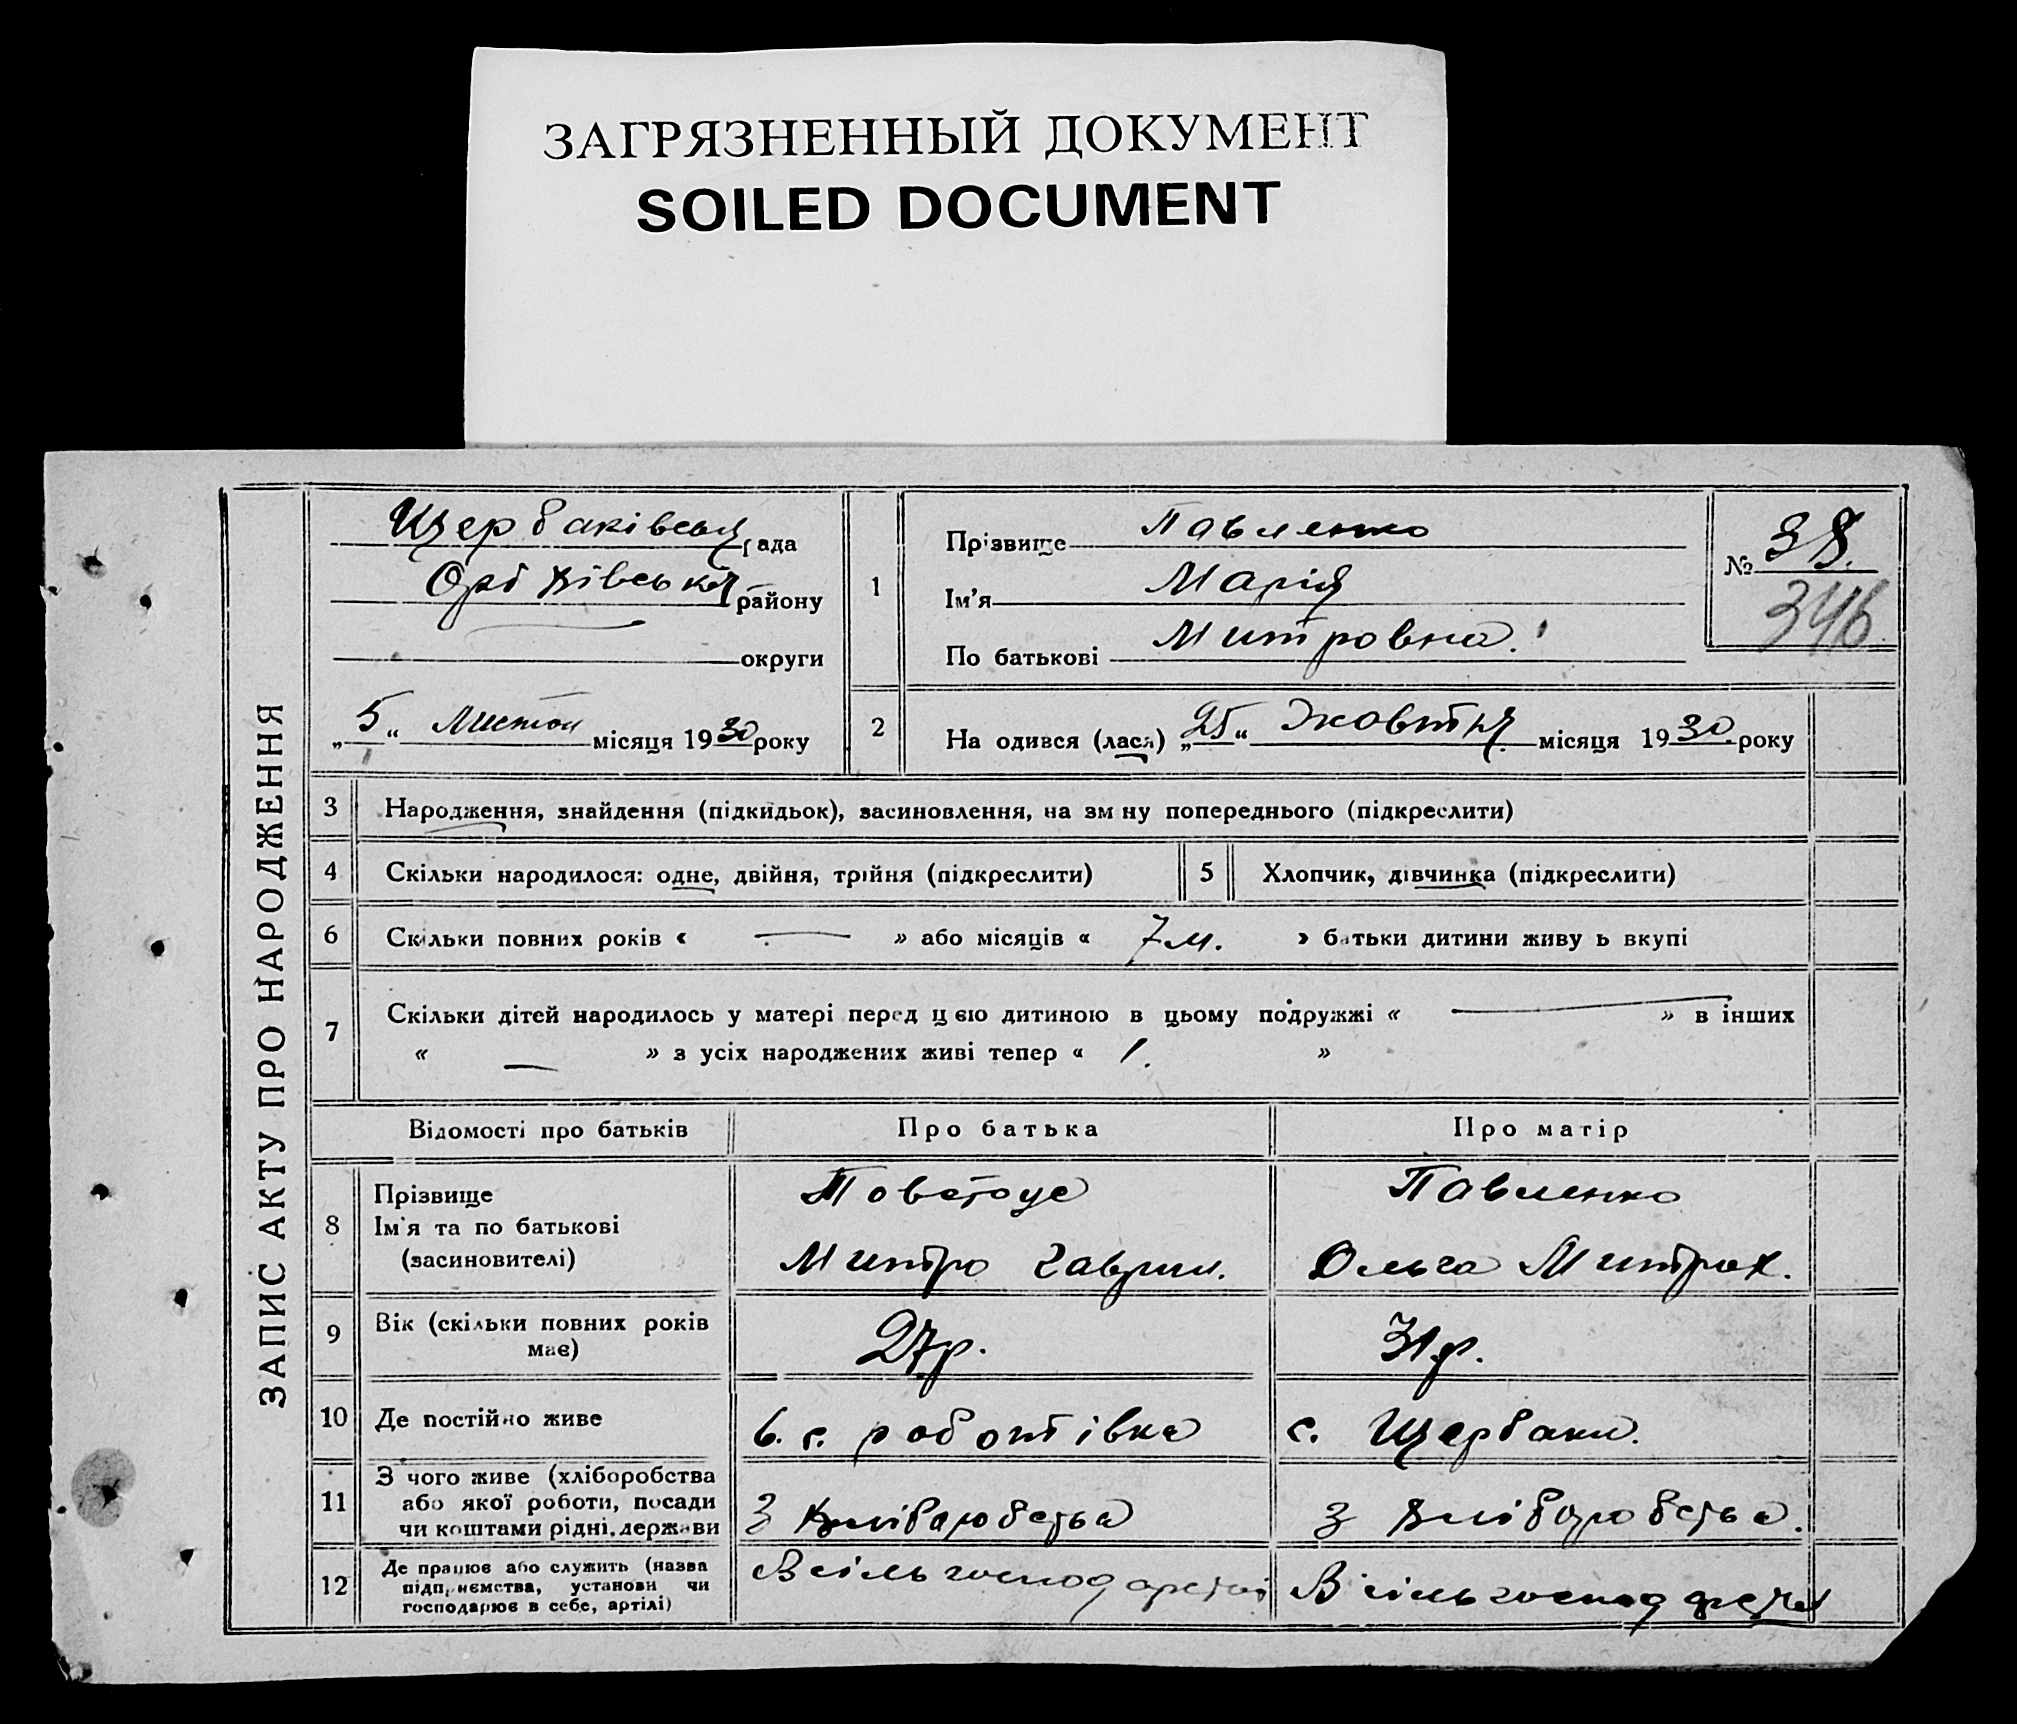 ЗАГРЯЗНЕННЫЙ ДОКУМЕНТ
SOILED DOCUMENT
ЗАПИС АКТУ ПРО НАРОДЖЕННЯ
Щербаківська рада
району
округи
„5“ Листоп місяця 1930 року
1
Прізвище Павленко
Ім'я Марія
По батькові Митровна
№ 38.
346
2
На одився (лася) „25“ Жовтня місяця 1930 року
3 Народження, знайдення (підкидьок), засиновлення, на зм ну попереднього (підкреслити)
4 Скільки народилося: одне, двійня, трійня (підкреслити)
5 Хлопчик, дівчинка (підкреслити)
6 Скільки повних років « — » або місяців « 7 м. » батьки дитини живу ь вкупі
7 Скільки дітей народилось у матері перед цією дитиною в цьому подружжі « — » в інших
« — » з усіх народжених живі тепер « 1. »
Відомості про батьків Про батька Про матір
8 Прізвище
Ім'я та по батькові
(засновителі)
Товстоус
Митро Гаврил.
Павленко
Ольга Митрох.
9 Вік (скільки повних років
має)
27р.
31р.
10 Де постійно живе
с. Щербаки.
11 З чого живе (хліборобства
або якої роботи, посади
чи коштами рідні, держави
З хліборобства
з хліборобства.
12 Де працює або служить (назва
підприємства, установи чи
господарює в себе, артілі)
В сільгосподартілі
В сільгосподартілі